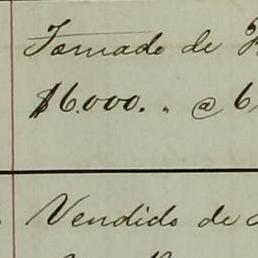 Tomado de
$6.000. " @ 6
Vendido de